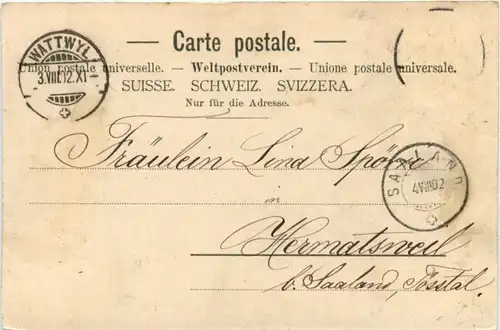 — Carte postale. —
Union postale universelle. — Weltpostverein. — Unione postale universale.
SUISSE. SCHWEIZ. SVIZZERA.
Nur für die Adresse.
WATTWYL
3.VIII.02.XI
Fräulein Lina
SAALAND
4.VIII.02
in
Hermatsweil
b. Saaland, Tösstal.